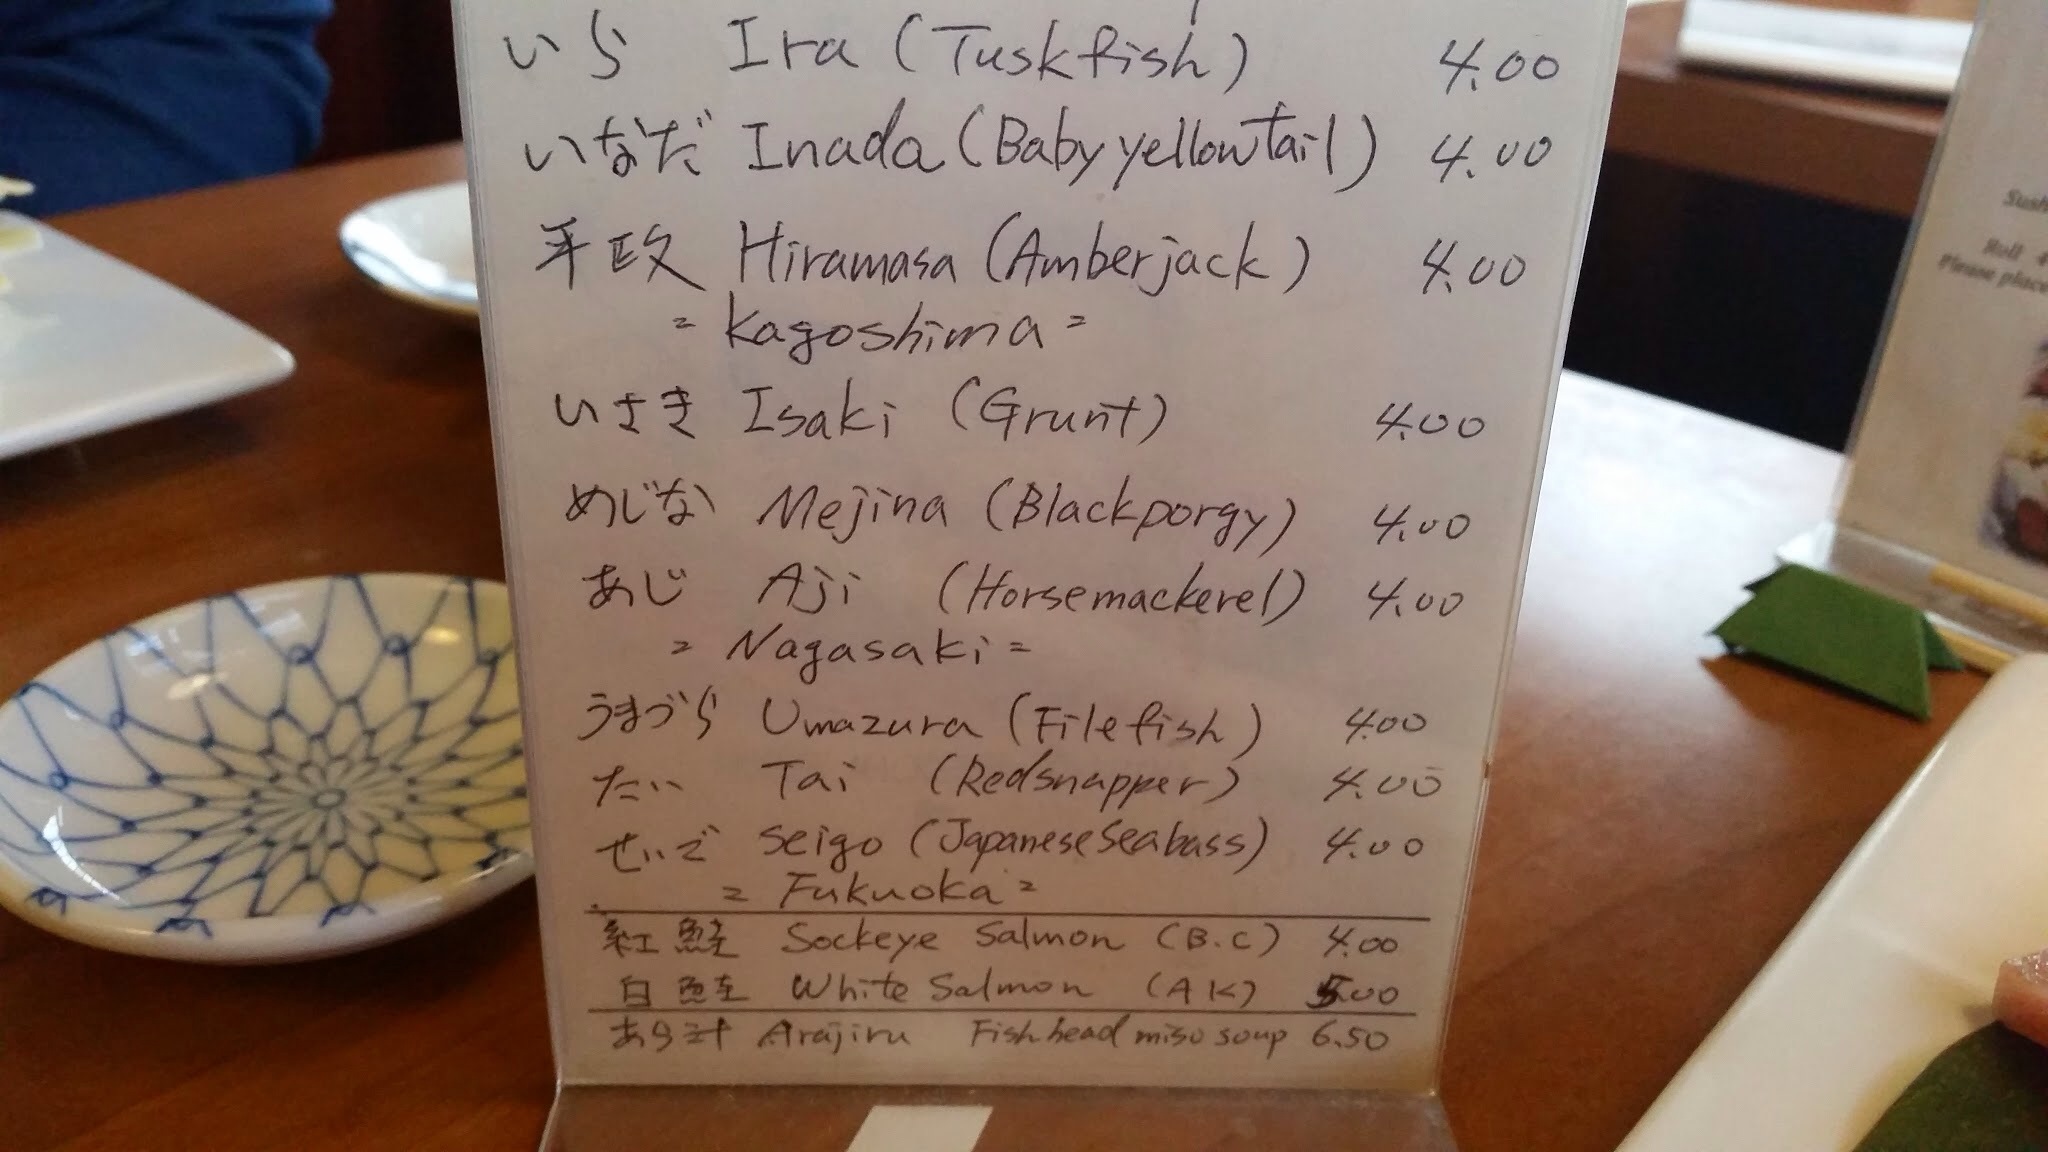 いら Ira (Tuskfish) 4.00
いなだ Inada (Baby yellowtail) 4.00
平政 Hiramasa (Amberjack) 4.00
= Kagoshima =
いさき Isaki (Grunt) 4.00
めじな Mejina (Blackporgy) 4.00
あじ Aji (Horsemackerel) 4.00
= Nagasaki =
うまづら Umazura (Filefish) 4.00
たい Tai (Redsnapper) 4.00
せいご Seigo (Japanese Seabass) 4.00
= Fukuoka =
紅鮭 Sockeye Salmon (B.C) 4.00
白鮭 White Salmon (AK) 5.00
あら汁 Arajiru Fish head miso soup 6.50
Roll
Please place